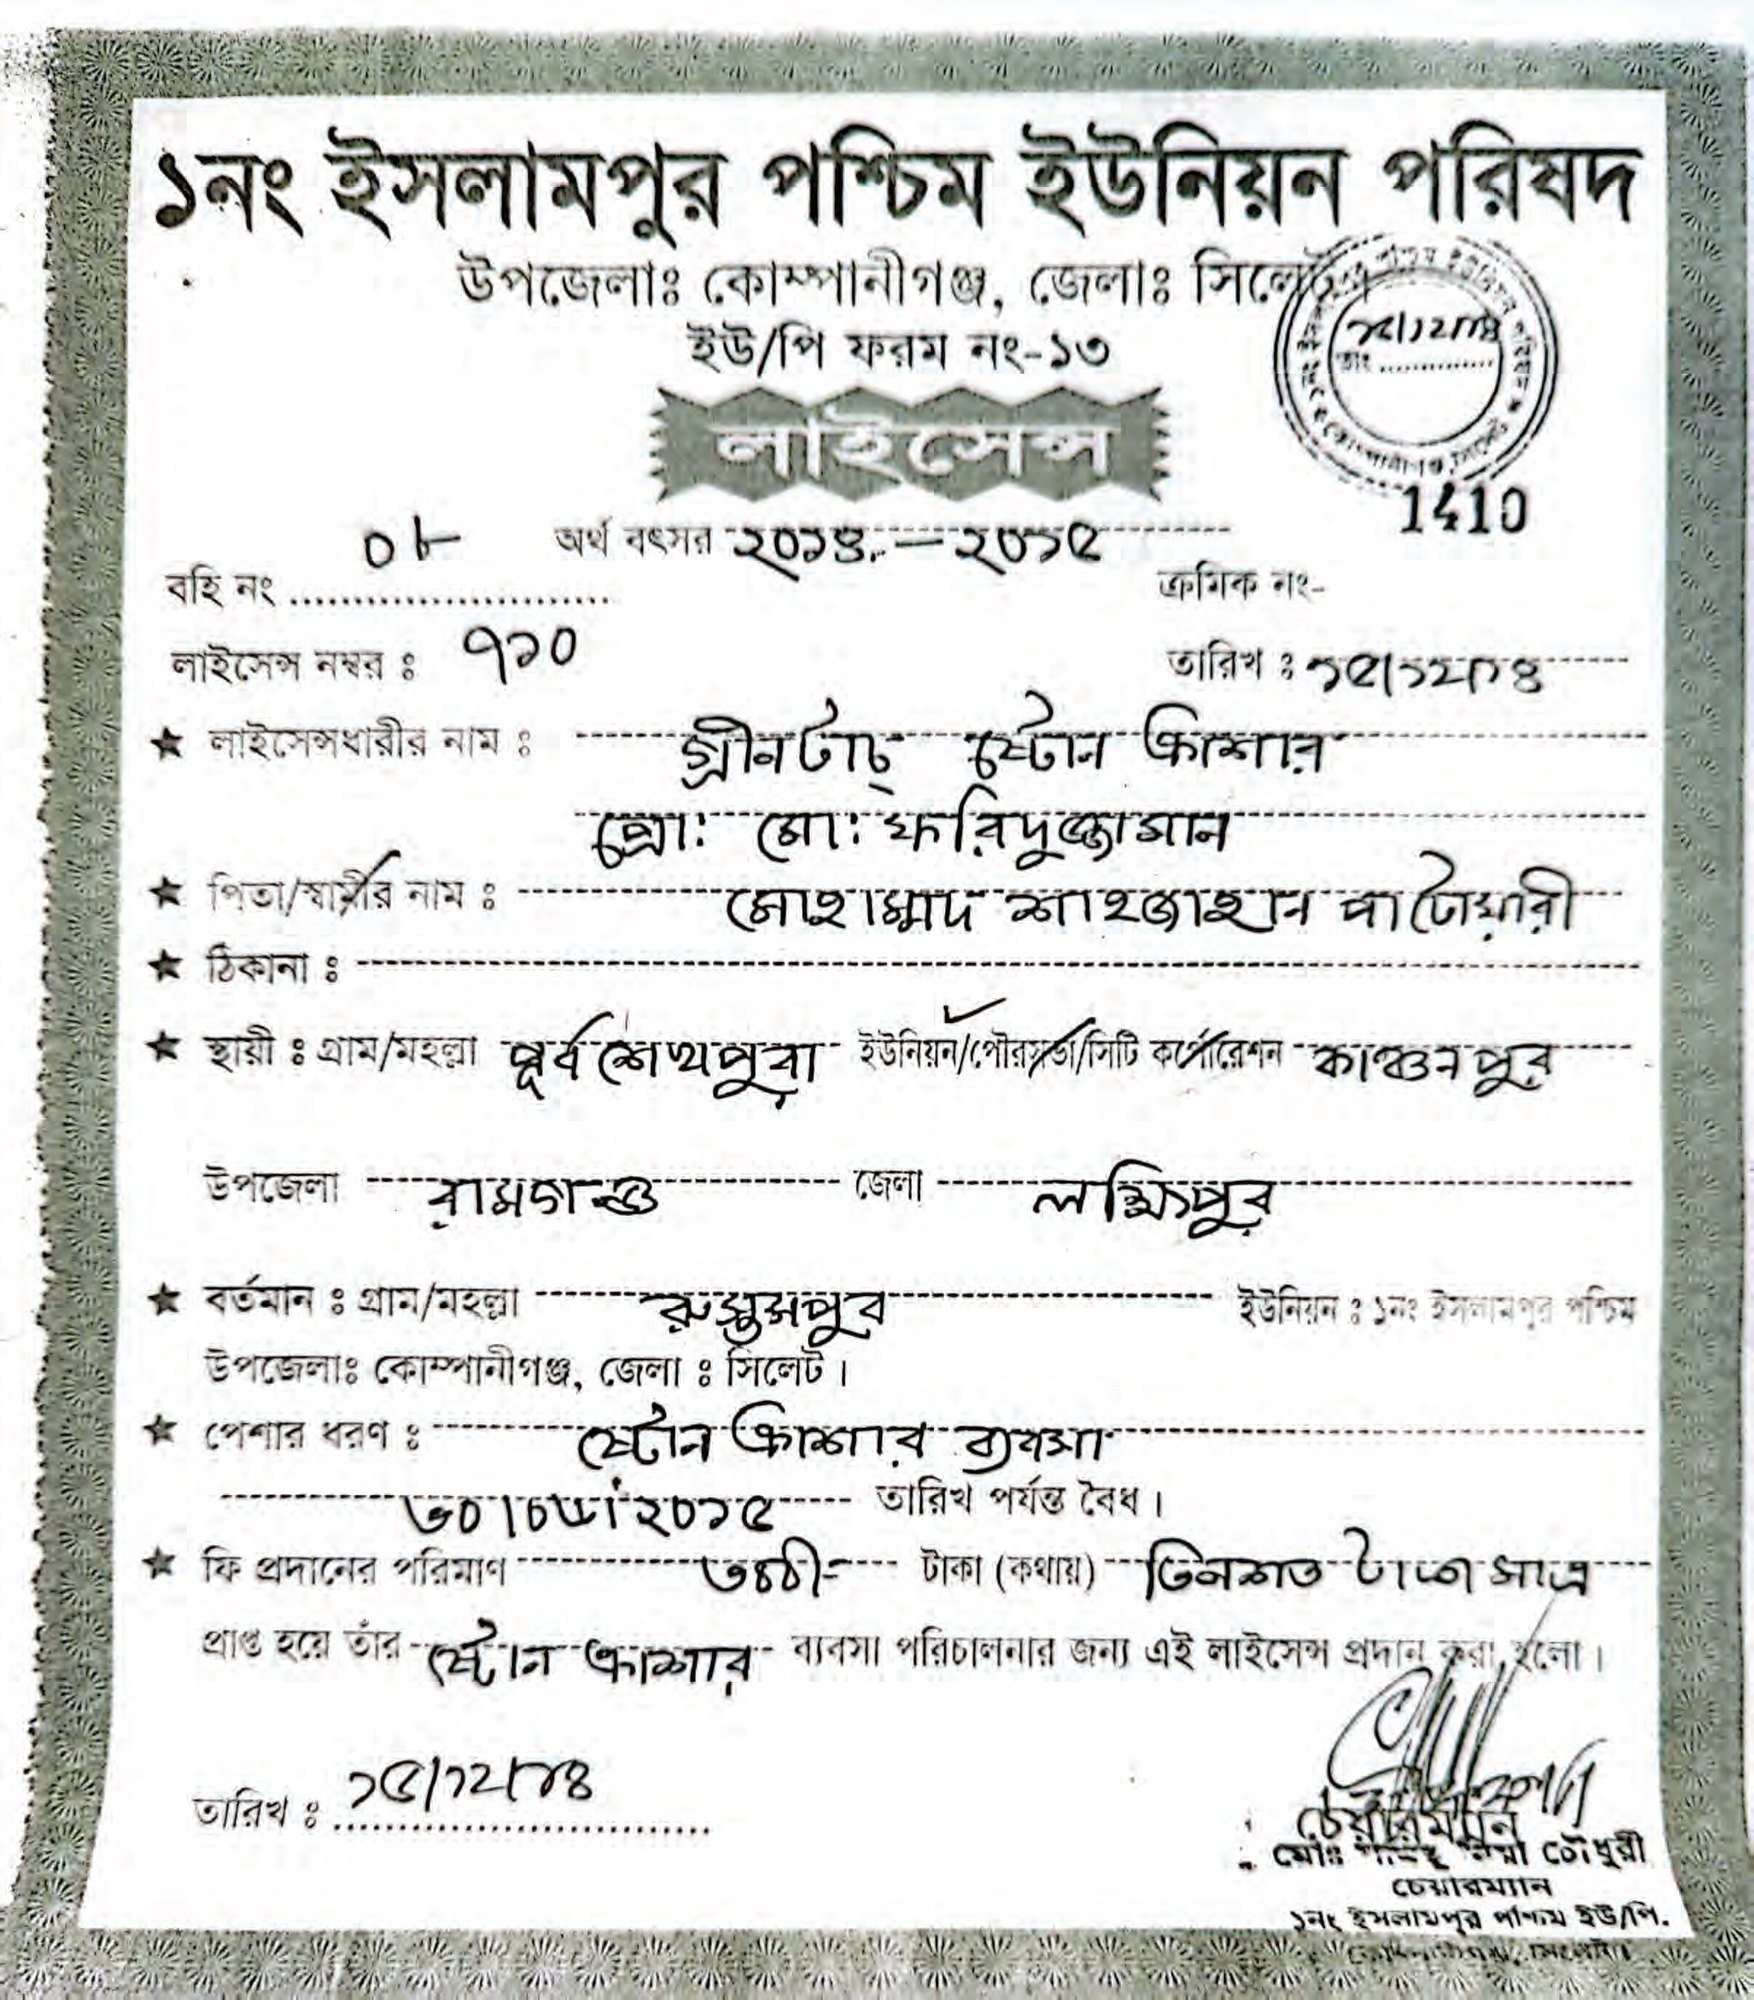 ১নং ইসলামপুর পশ্চিম ইউনিয়ন পরিষদ
উপজেলাঃ কোম্পানীগঞ্জ, জেলাঃ সিলেট।
ইউ/পি ফরম নং-১৩
তাং ............ ১৫/১২/১৪
লাইসেন্স
1410
বহি নং ........ ০৮ অর্থ বৎসর ২০১৪ - ২০১৫ ক্রমিক নং-
লাইসেন্স নম্বর ঃ ৭১০ তারিখ ঃ ১৫/১২/১৪
★ লাইসেন্সধারীর নাম ঃ গ্রীনটাচ্ ষ্টোন ক্রাশার
প্রো: মো: ফরিদুজ্জামান
★ পিতা/স্বামীর নাম ঃ মোহাম্মদ শাহজাহান পাটোয়ারী
★ ঠিকানা ঃ
★ স্থায়ী ঃ গ্রাম/মহল্লা পূর্ব শেখপুরা ইউনিয়ন/পৌরসভা/সিটি কর্পোরেশন কাঞ্চনপুর
উপজেলা রামগঞ্জ জেলা লক্ষিপুর
★ বর্তমান ঃ গ্রাম/মহল্লা রুস্তুমপুর ইউনিয়ন ঃ ১নং ইসলামপুর পশ্চিম
উপজেলাঃ কোম্পানীগঞ্জ, জেলা ঃ সিলেট।
★ পেশার ধরণ ঃ ষ্টোন ক্রাশার ব্যবসা
২০১৫ তারিখ পর্যন্ত বৈধ।
★ ফি প্রদানের পরিমাণ ৩০০/- টাকা (কথায়) তিনশত টাকা মাত্র
প্রাপ্ত হয়ে তাঁর ষ্টোন ক্রাশার ব্যবসা পরিচালনার জন্য এই লাইসেন্স প্রদান করা হলো।
তারিখ ঃ ১৫/১২/১৪
চেয়ারম্যান
মোঃ চৌধুরী
চেয়ারম্যান
১নং ইসলামপুর পশ্চিম ইউ/পি.